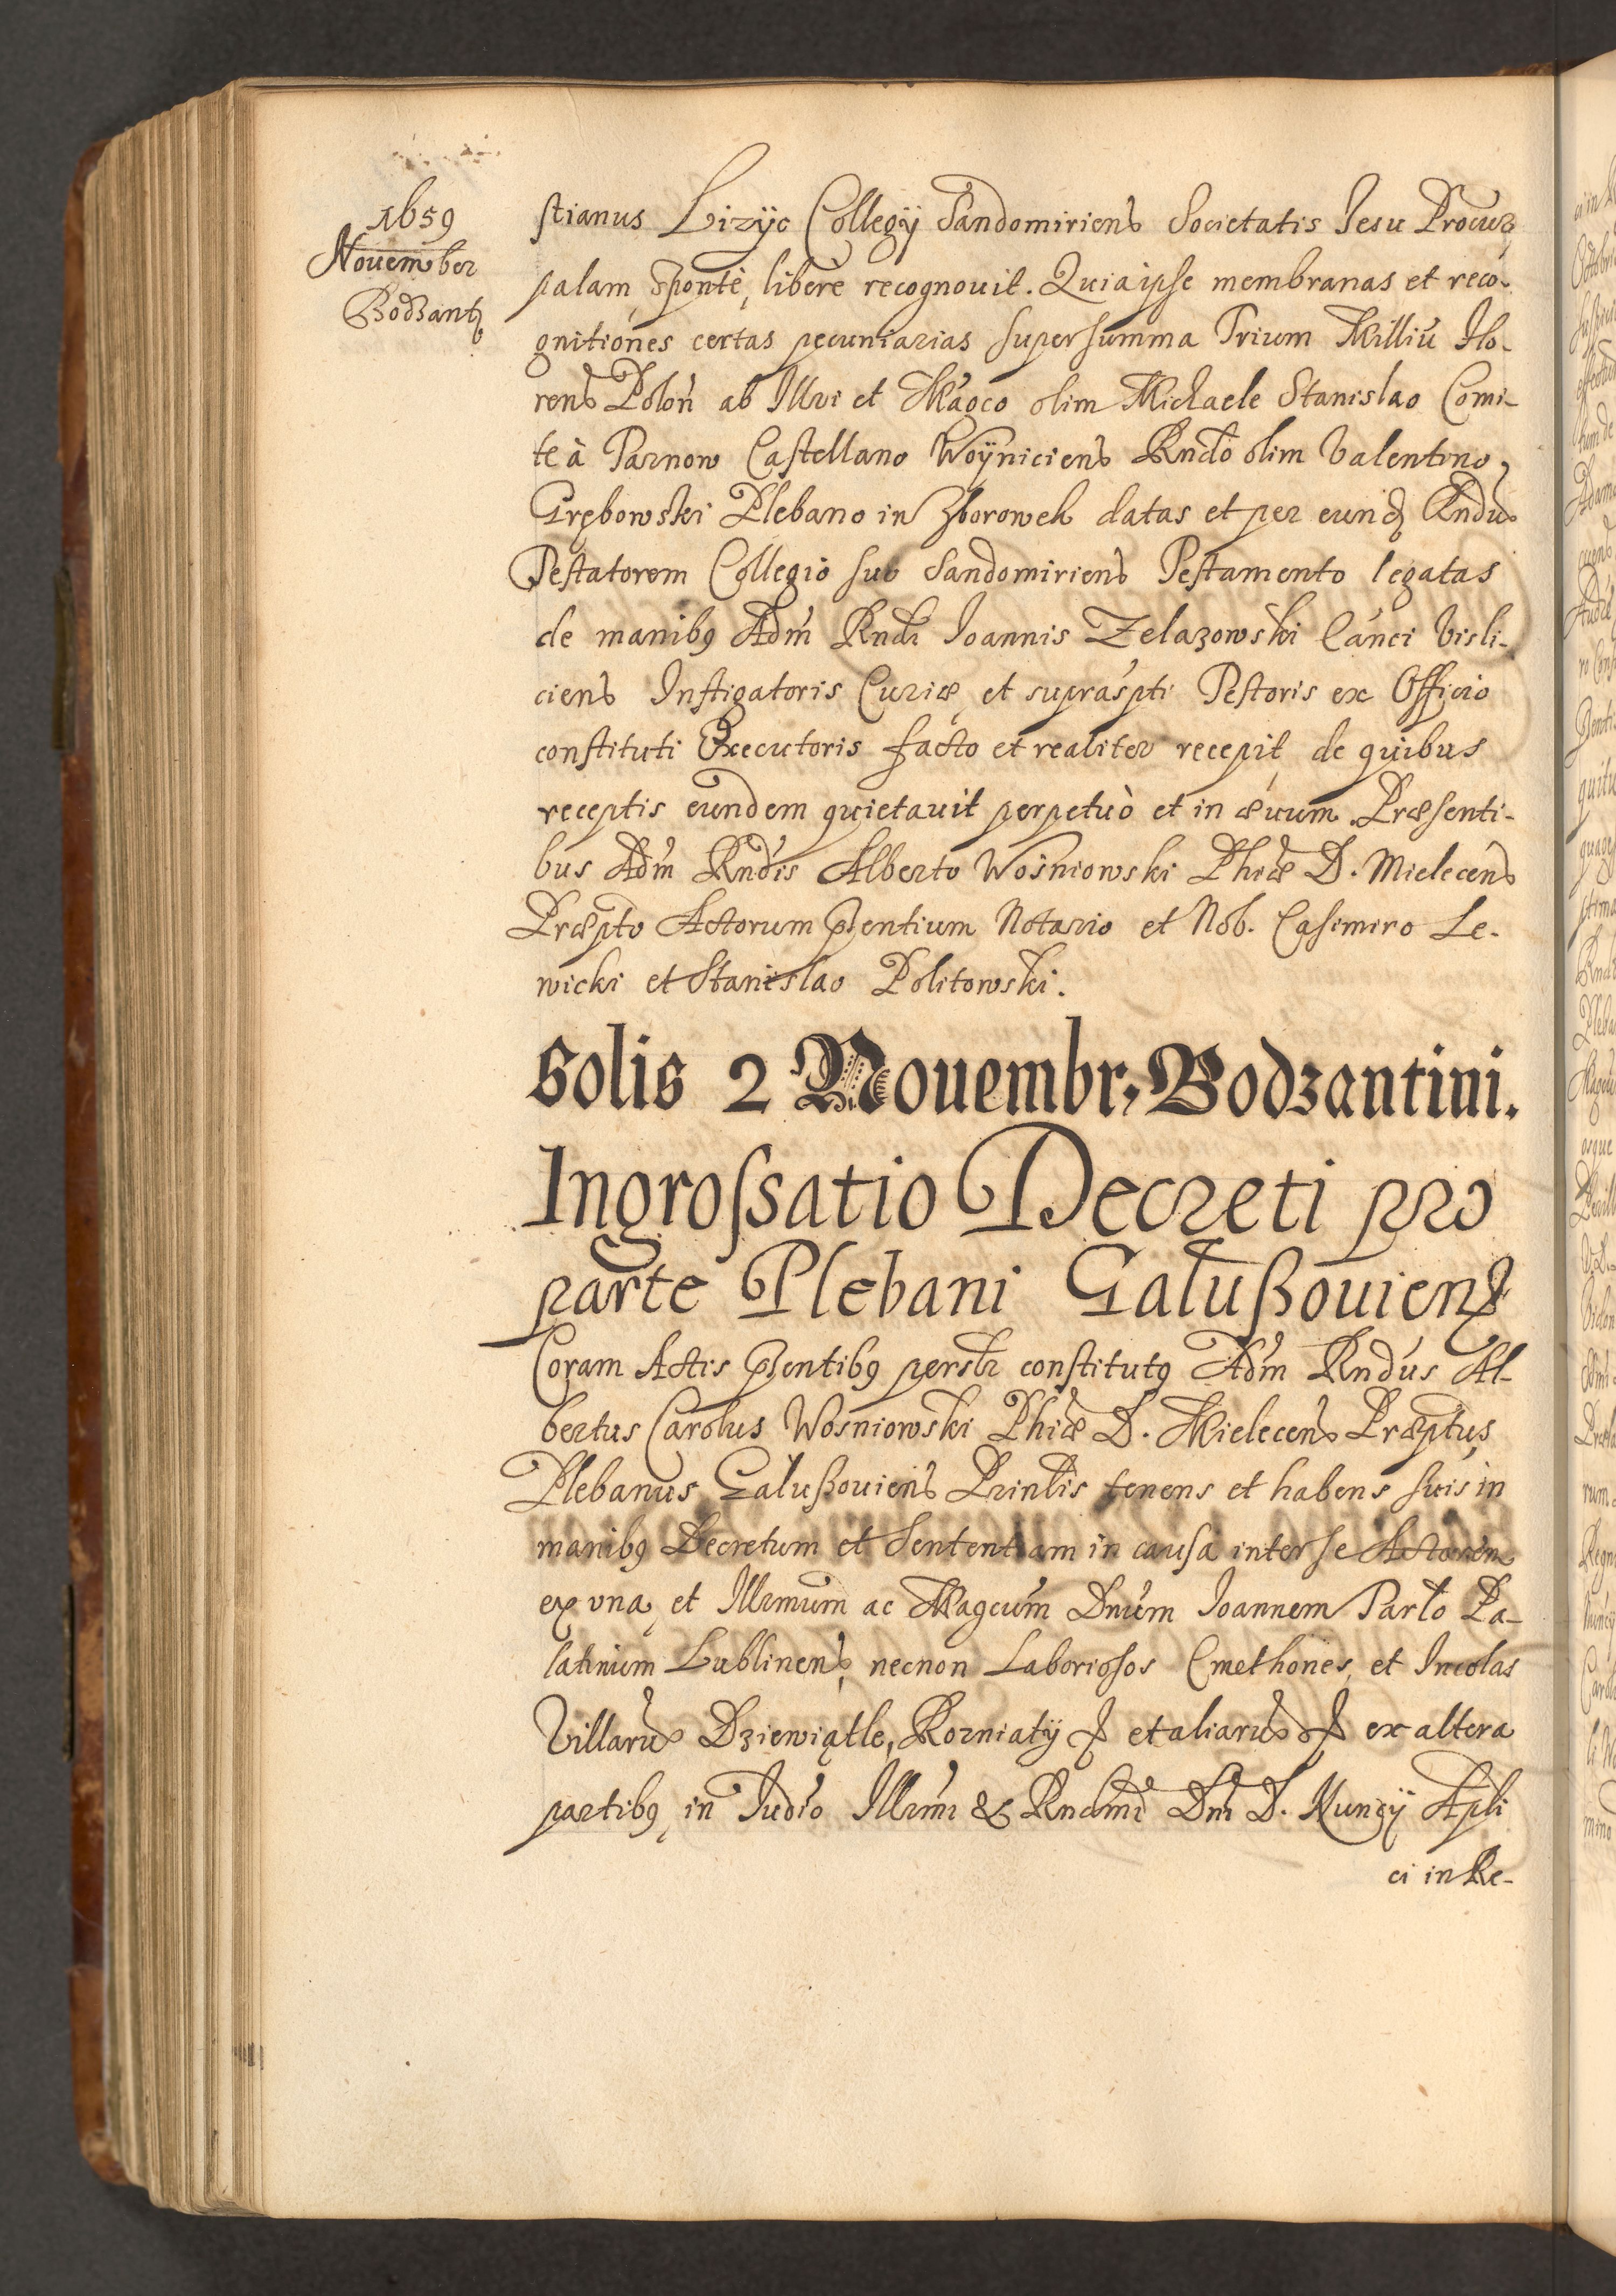 1659
Nouember
Bodzant
stianus Lizÿc Collegÿ Sandomiriens Societatis Iesu Procur
palam, sponte, libere recognouit. Quia ipse membranas et reco-
gnitiones certas pecuniarias super summa Trium Milliū Flo-
rens Polon ab Illri et Magco olim Michaele Stanislao Comi-
te à Tarnow Castellano Woÿniciens Rndo olim Valentino
Grębowski Plebano in Zborowek datas et per eund Rndū
Testatorem Collegio suo Sandomiriens Testamento legatas
de manibg Adm Rndi Ioannis Zelazowski Canci Visli-
ciens Instigatoris Curiæ et suprascpti Testoris ex Officio
constituti Executoris facto et realiter recepit, de quibus
receptis eundem quietauit perpetuò et in æuum. Præsenti-
bus Adm Rndis Alberto Wosniowski Phiæ D. Mielecens
Præpto Actorum pntium Notario et Nob. Casimiro Le-
wicki et Stanislao Politowski.
Solis 2 Nouembr; Bodzantini.
Ingrossatio Decreti pro
parte Plebani Galußouiens
Coram Actis pntibg persler constitutg Adm Rndus Al-
bertus Carolus Wosniowski Phiæ D. Mielecens Præptus
Plebanus Galußouiens Prinlis tenens et habens suis in
manibg Decretum et Sententiam in causa inter se Actorem
ex vna, et Illrmum ac Magcum Dnum Ioannem Tarlo Pa-
latinum Lublinens, necnon Laboriosos Cmethones et Incolas
Villarū Dziewiątle, Korniatÿ et aliarū ex altera
partibg, in Iudio Illrmi & Rndmi Dni D. Nuncÿ Apli
ci in Re-